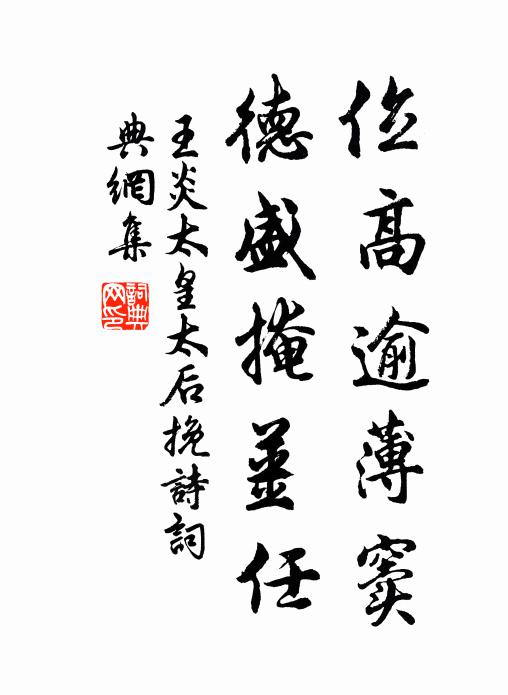 位高逾薄窦
德盛掩薑任
王炎太皇太后挽詩詞
典網集
詞典
网印